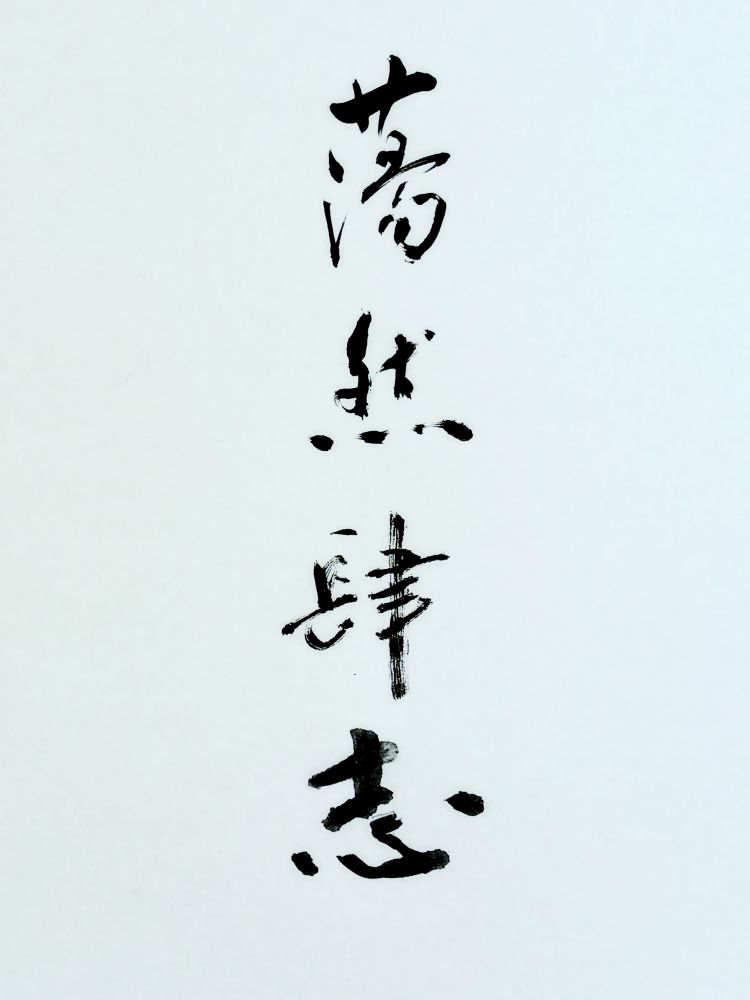 蕩然肆志